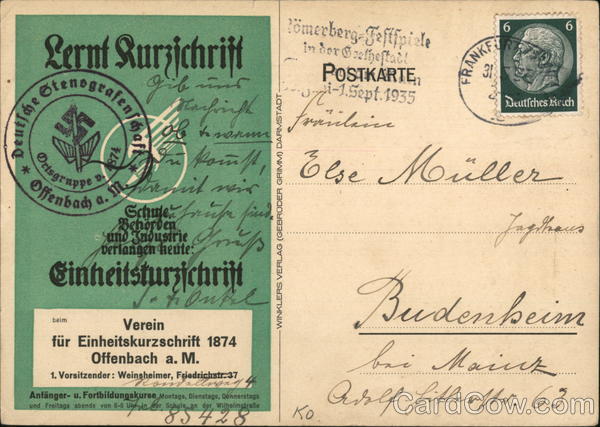 Lernt Kurzschrift
Deutsche Stenografenschaft
Ortsgruppe v. 1874
Offenbach a. M.
Gib uns
Nachricht
ob u. wann
Du kommst,
damit wir
zuhause sind
Gruß
Onkel
Schule,
Behörden
und Industrie
verlangen heute:
Einheitskurzschrift
beim
Verein
für Einheitskurzschrift 1874
Offenbach a. M.
1. Vorsitzender: Weinsheimer, Friedrichstr. 37
4
Anfänger- u. Fortbildungskurse Montags, Dienstags, Donnerstags
und Freitags abends von 6-8 Uhr in der Schule an der Wilhelmstraße
85428
WINKLERS VERLAG (GEBRÜDER GRIMM) DARMSTADT
Römerberg-Festspiele
in der Goethestadt
1. Sept. 1935
POSTKARTE
FRANKFURT
6 6
Deutsches Reich
Fräulein
Else Müller
Jagdhaus
Budenheim
bei Mainz
Adolf 63
Ko.
CardCow.com